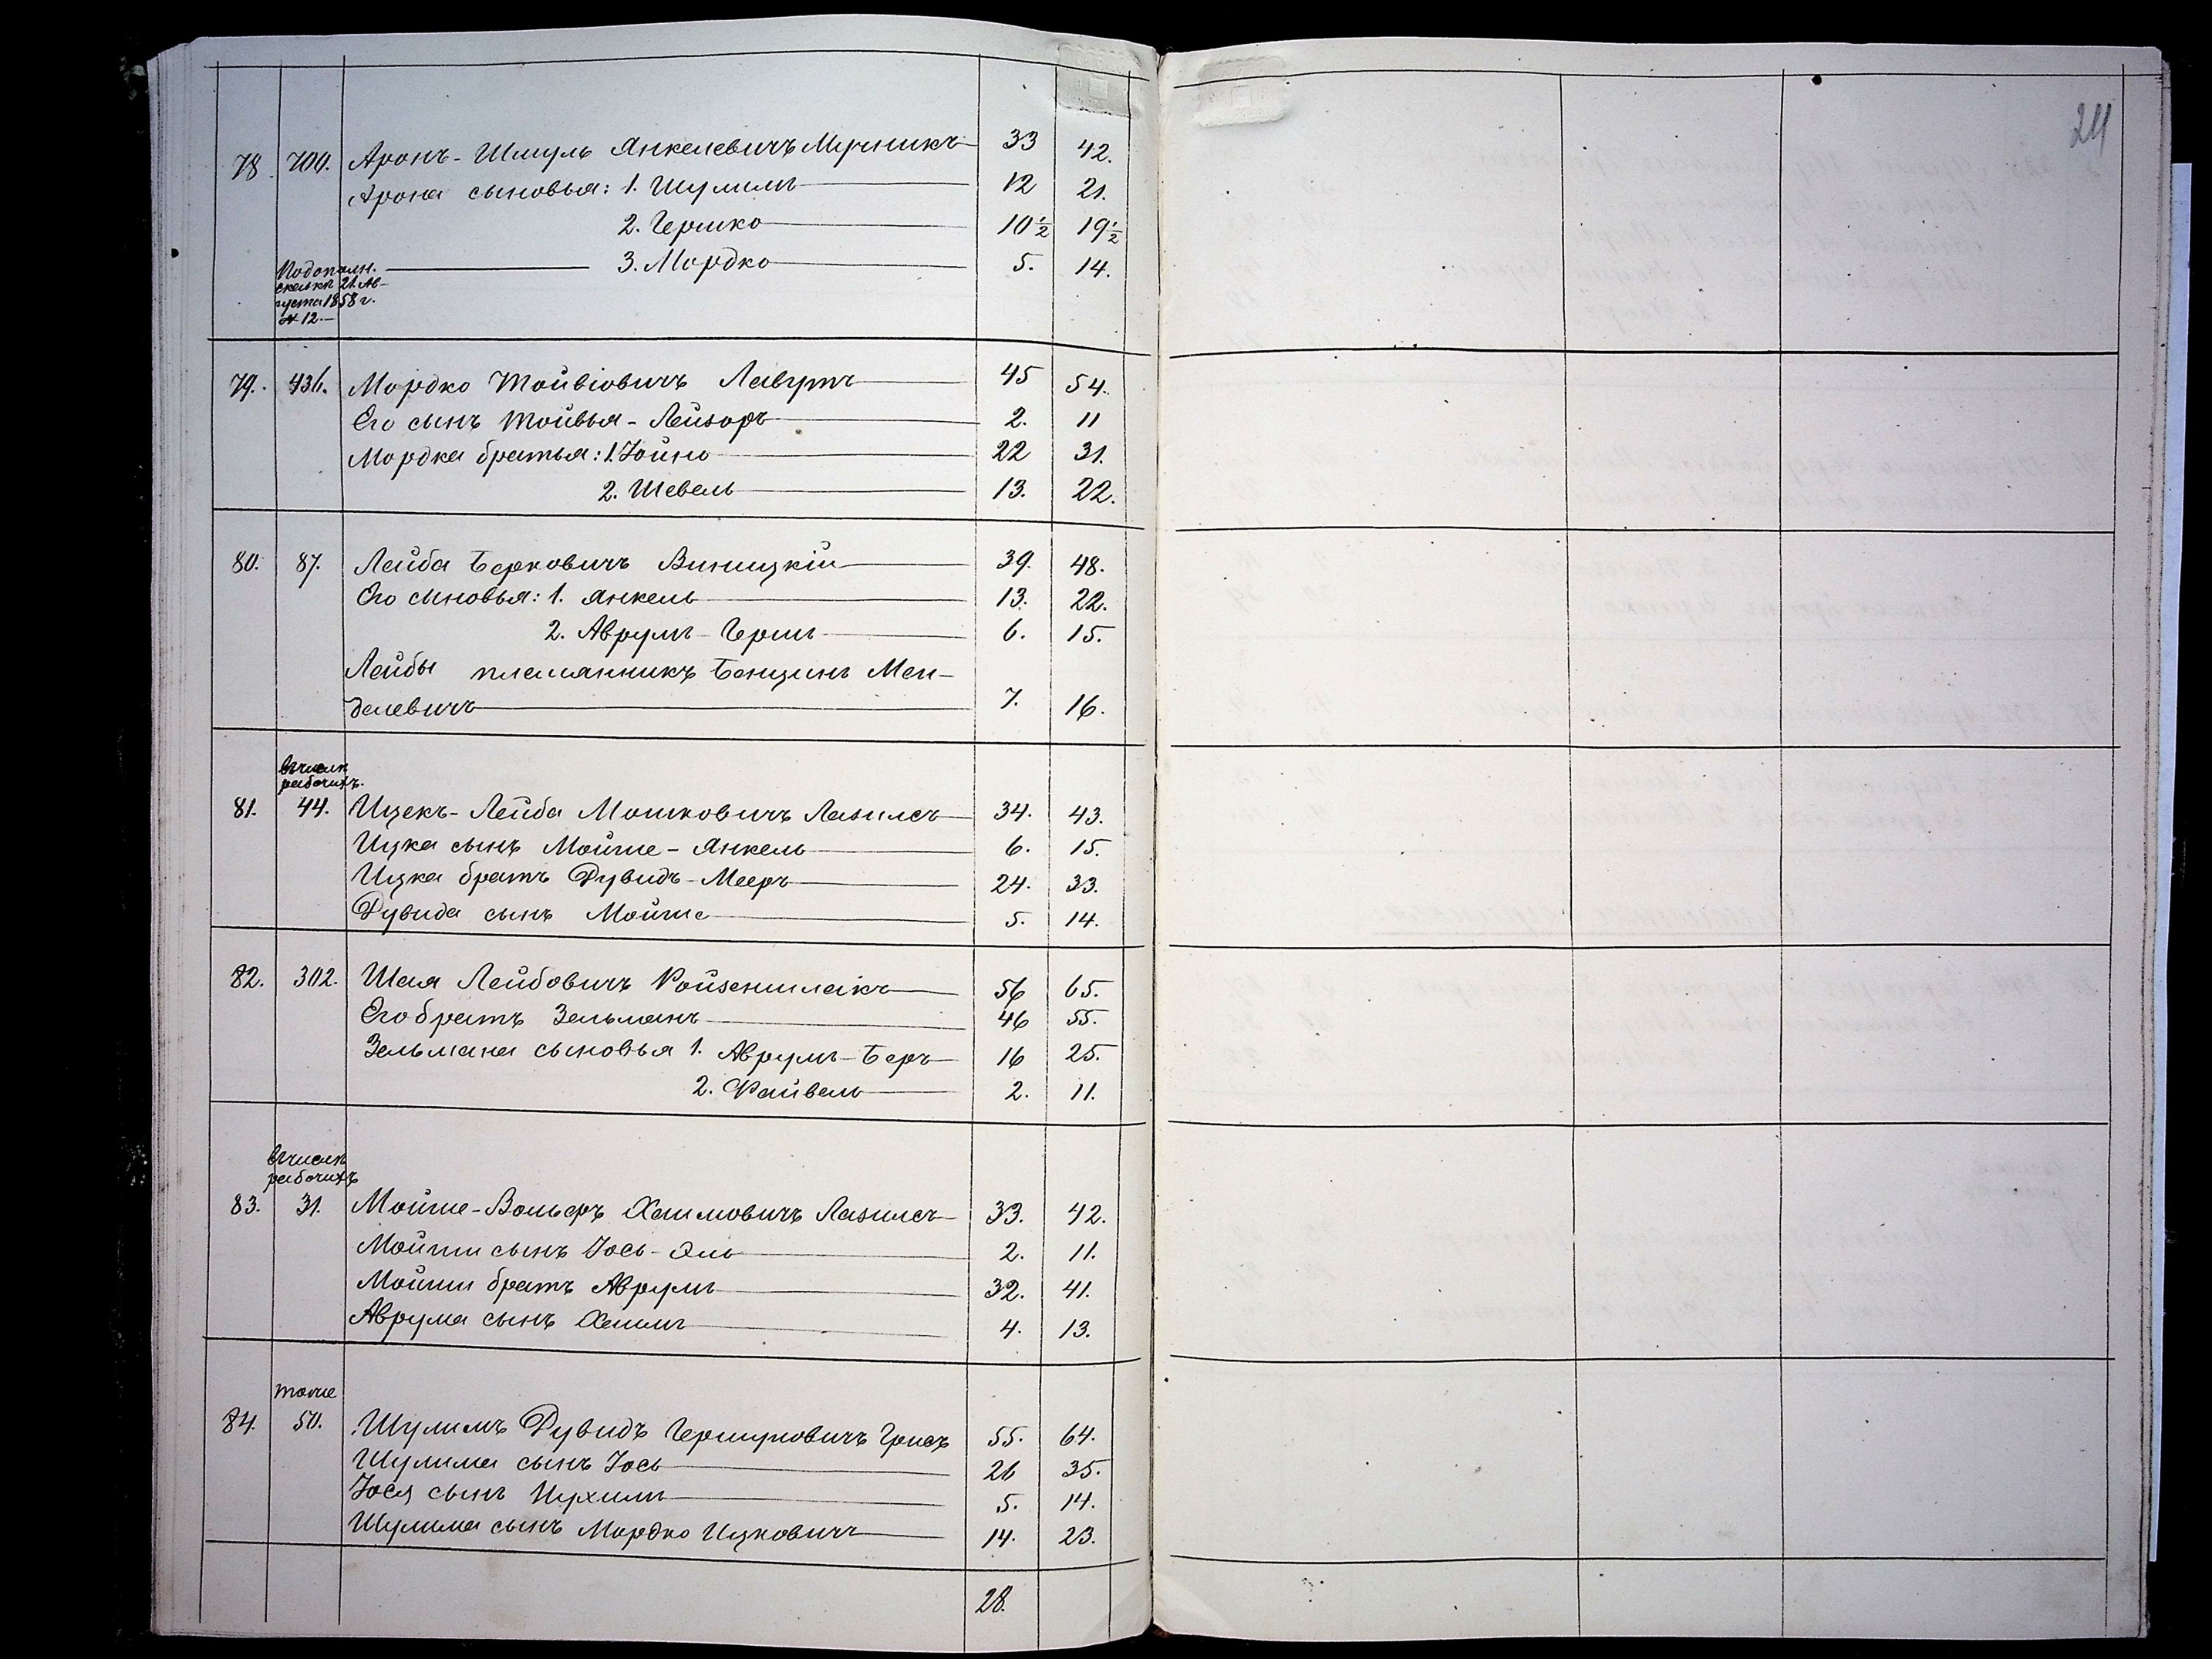 24
78. 700. Аронъ-Шмуль Янкелевичъ Мучникъ 33 42.
Арона сыновья: 1. Шулимъ 12 21.
2. Гершко 10½ 19½
3. Мордко 5. 14.
По дополн.
сказкѣ 21 Ав-
густа 1858 г.
№ 12.
79. 436. Мордко Тойвіовичъ Лавутъ 45 54.
Его сынъ Тойвья-Лейзоръ 2. 11
Мордка братья: 1. Іойно 22 31.
2. Шевель 13. 22.
80. 87. Лейба Берковичъ Виницкій 39. 48.
Его сыновья: 1. Янкель 13. 22.
2. Аврумъ-Герш 6. 15.
Лейбы племянникъ Бенцинъ Мен-
делевичъ 7. 16.
Вчислѣ
рабочихъ.
81. 44. Ицекъ-Лейба Мошковичъ Лазилсъ 34. 43.
Ицка сынъ Мойше-Янкель 6. 15.
Ицка братъ Дувидъ-Мееръ 24. 33.
Дувида сынъ Мойше 5. 14.
82. 302. Шая Лейбовичъ Ройзеншлакъ 56 65.
Его братъ Зельманъ 46 55.
Зельмана сыновья 1. Аврумъ-Беръ 16 25.
2. Файвель 2. 11.
Вчислѣ
рабочихъ
83. 31. Мойше-Вольфъ Хаимовичъ Лазилсъ 33. 42.
Мойши сынъ Іось-Эль 2. 11.
Мойши братъ Аврумъ 32. 41.
Аврума сынъ Хаимъ 4. 13.
тоже
84. 50. Шулимъ Дувидъ Гершуновичъ Грисъ 55. 64.
Шулима сынъ Іось 26 35.
Іося сынъ Нухимъ 5. 14.
Шулима сынъ Мордко Ицковичъ 14. 23.
28.